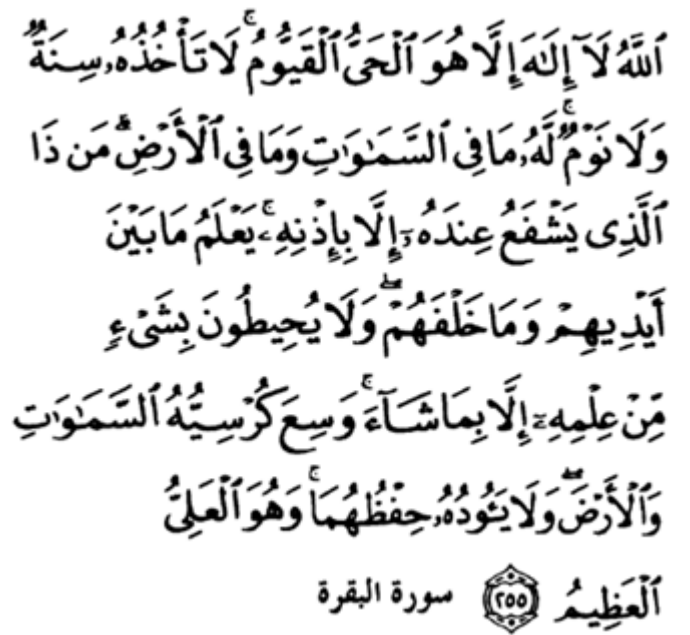 ٱللَّهُ لَآ إِلَٰهَ إِلَّا هُوَ ٱلْحَىُّ ٱلْقَيُّومُ ۚ لَا تَأْخُذُهُۥ سِنَةٌ
وَلَا نَوْمٌ ۚ لَّهُۥ مَا فِى ٱلسَّمَٰوَٰتِ وَمَا فِى ٱلْأَرْضِ ۗ مَن ذَا
ٱلَّذِى يَشْفَعُ عِندَهُۥٓ إِلَّا بِإِذْنِهِۦ ۚ يَعْلَمُ مَا بَيْنَ
أَيْدِيهِمْ وَمَا خَلْفَهُمْ ۖ وَلَا يُحِيطُونَ بِشَىْءٍ
مِّنْ عِلْمِهِۦٓ إِلَّا بِمَا شَآءَ ۚ وَسِعَ كُرْسِيُّهُ ٱلسَّمَٰوَٰتِ
وَٱلْأَرْضَ ۖ وَلَا يَـُٔودُهُۥ حِفْظُهُمَا ۚ وَهُوَ ٱلْعَلِىُّ
ٱلْعَظِيمُ ٢٥٥ سورة البقرة